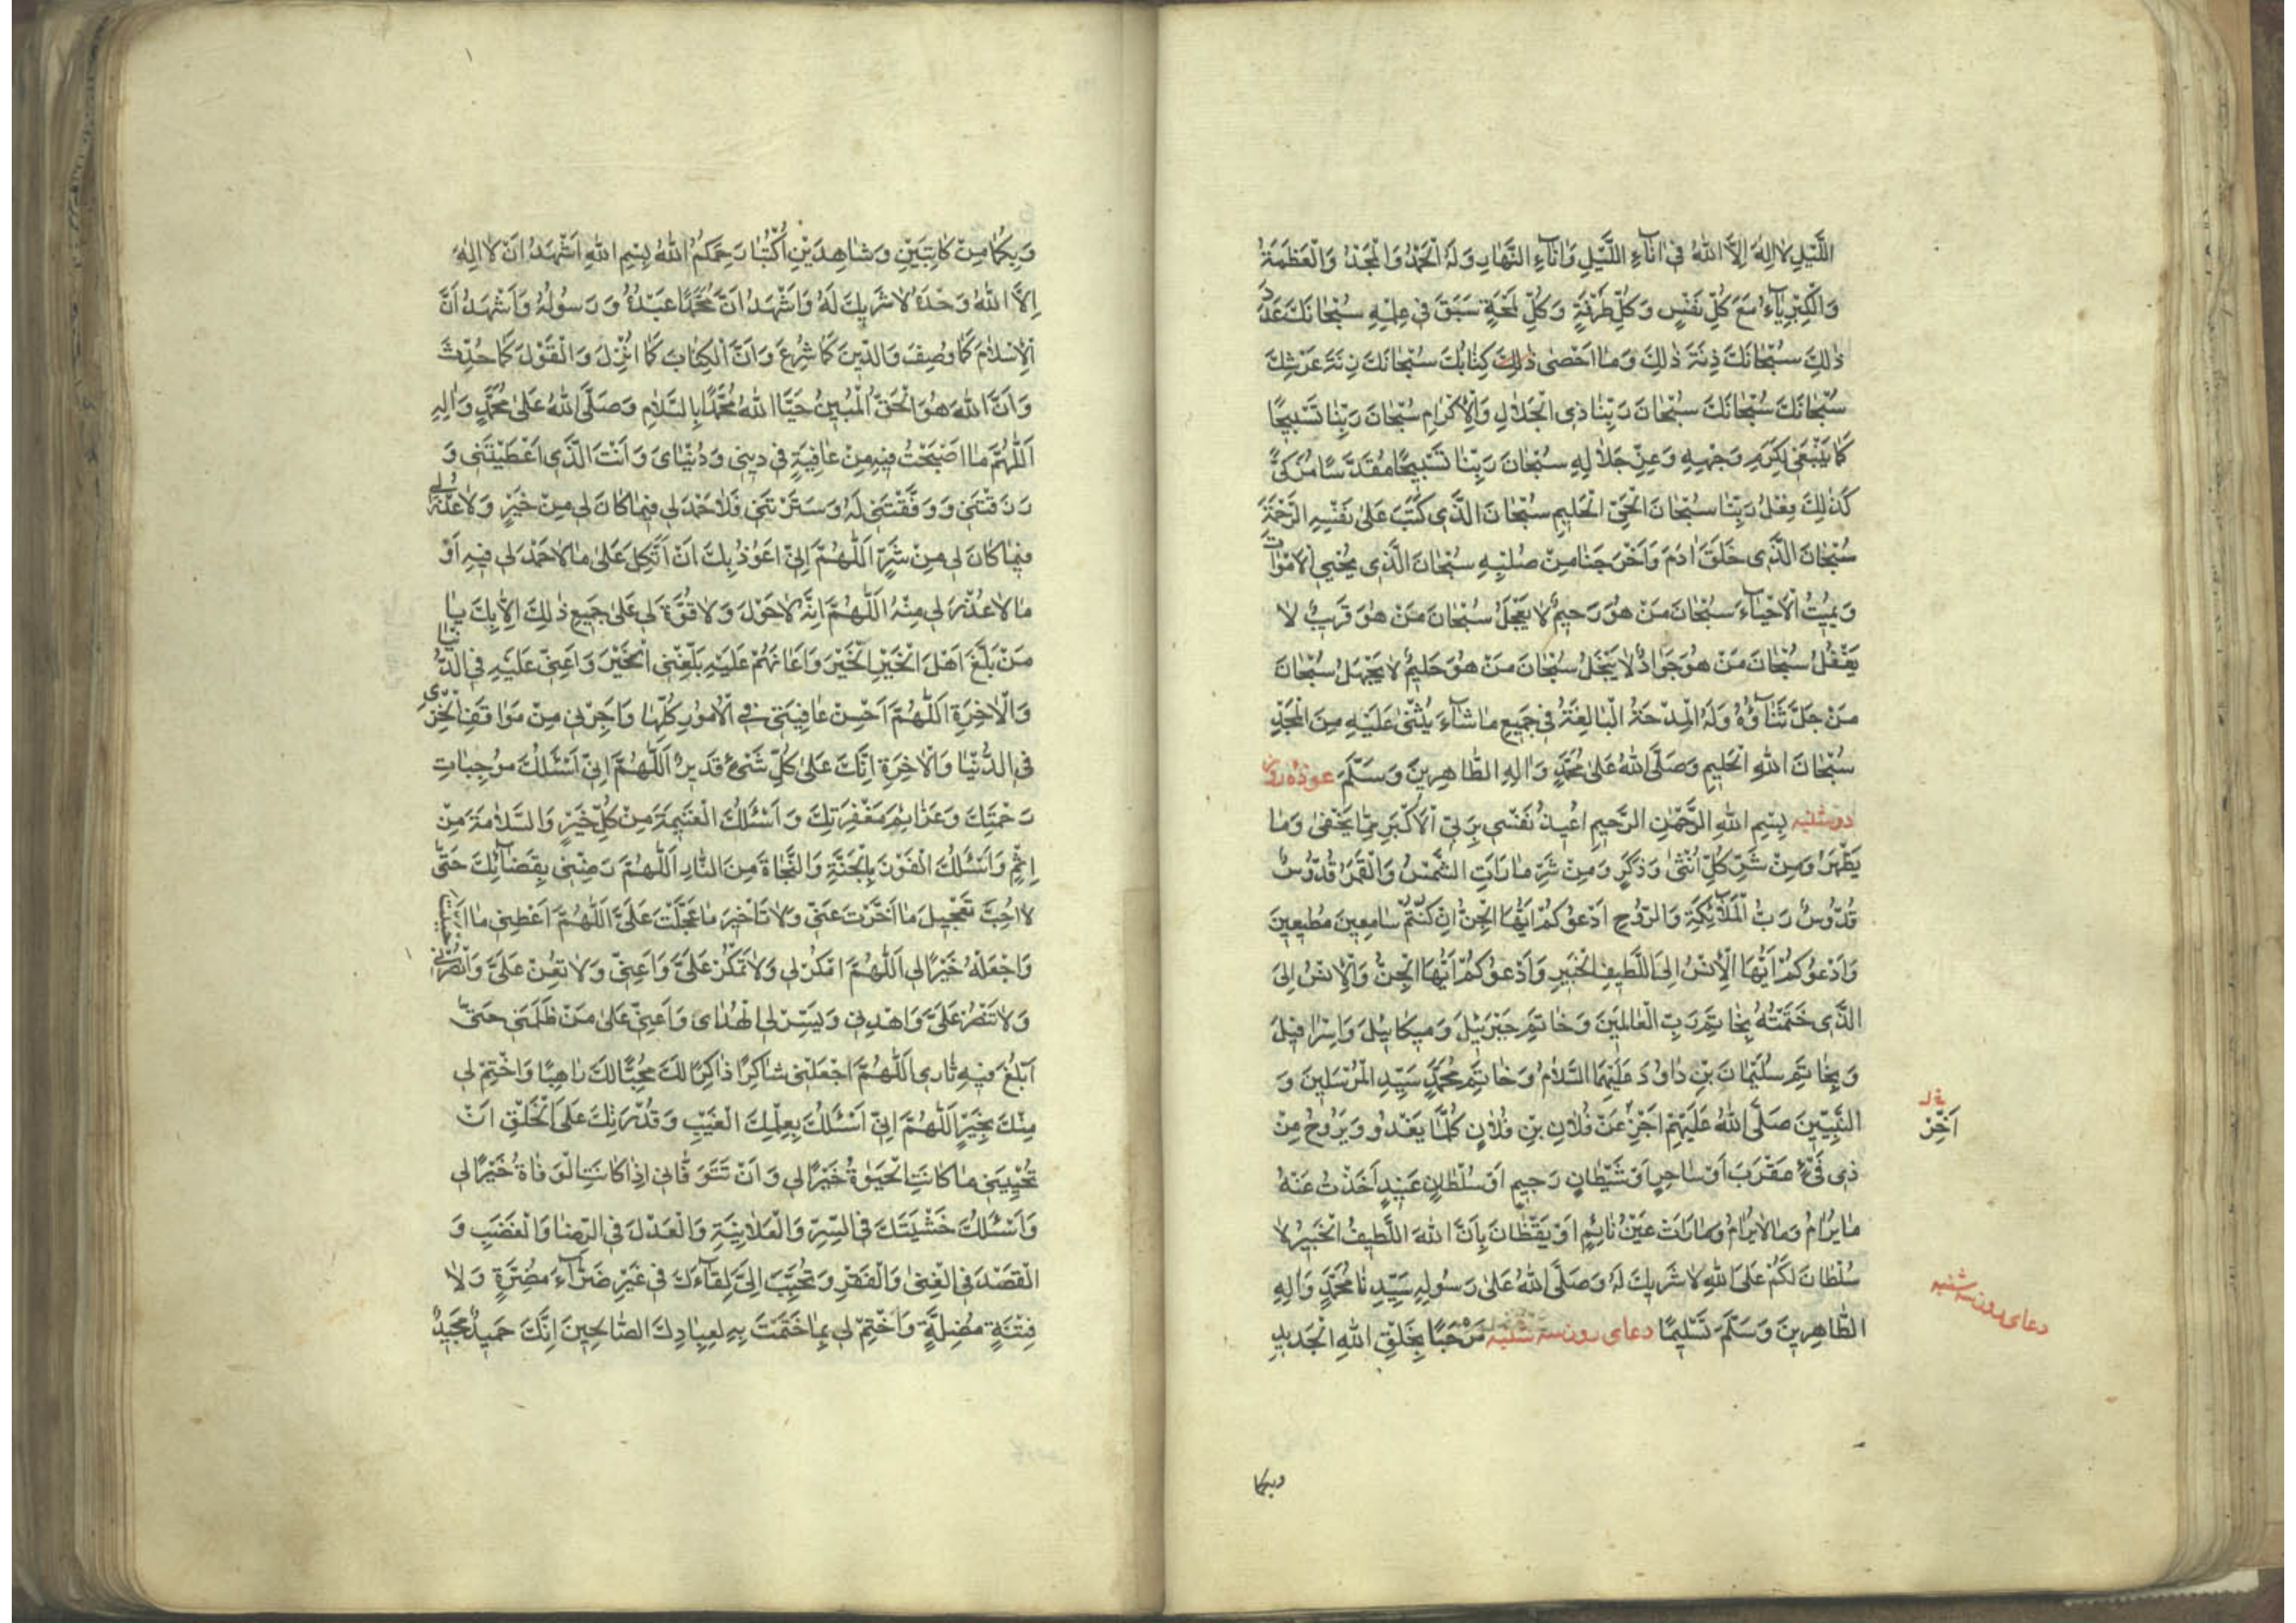 اللَّيْلِ لا اِلٰهَ اِلَّا اللّٰهُ فى اٰناءِ اللَّيْلِ وَاٰناءِ النَّهارِ وَلَهُ الْحَمْدُ وَالْمَجْدُ وَالْعَظَمَةُ
وَالْكِبْرِياءُ مَعَ كُلِّ نَفَسٍ وَكُلِّ طَرْفَةٍ وَكُلِّ لَمْحَةٍ سَبَقَ فى عِلْمِهِ سُبْحانَكَ عَدَدَ
ذٰلِكَ سُبْحانَكَ زِنَةَ ذٰلِكَ وَما اَحْصى ذٰلِكَ كِتابُكَ سُبْحانَكَ زِنَةَ عَرْشِكَ
سُبْحانَكَ سُبْحانَكَ سُبْحانَ رَبِّنا ذِى الْجَلالِ وَالْاِكْرامِ سُبْحانَ رَبِّنا تَسْبيحًا
كَما يَنْبَغى لِكَرَمِ وَجْهِهِ وَعِزِّ جَلالِهِ سُبْحانَ رَبِّنا تَسْبيحًا مُقَدَّسًا مُزَكًّى
كَذٰلِكَ فِعْلُ رَبِّنا سُبْحانَ الْحَىِّ الْحَليمِ سُبْحانَ الَّذى كَتَبَ عَلى نَفْسِهِ الرَّحْمَةَ
سُبْحانَ الَّذى خَلَقَ اٰدَمَ وَاَخْرَجَنا مِنْ صُلْبِهِ سُبْحانَ الَّذى يُحْيِى الْاَمْواتَ
وَيُميتُ الْاَحْياءَ سُبْحانَ مَنْ هُوَ رَحيمٌ لا يَعْجَلُ سُبْحانَ مَنْ هُوَ قَريبٌ لا
يَغْفُلُ سُبْحانَ مَنْ هُوَ جَوادٌ لا يَبْخَلُ سُبْحانَ مَنْ هُوَ حَليمٌ لا يَجْهَلُ سُبْحانَ
مَنْ جَلَّ ثَناؤُهُ وَلَهُ الْمِدْحَةُ الْبالِغَةُ فى جَميعِ ما شاءَ يُثْنى عَلَيْهِ مِنَ الْمَجْدِ
سُبْحانَ اللّٰهِ الْحَليمِ وَصَلَّى اللّٰهُ عَلى مُحَمَّدٍ وَاٰلِهِ الطّاهِرينَ وَسَلَّمَ عوذه روز
دوشنبه بِسْمِ اللّٰهِ الرَّحْمٰنِ الرَّحيمِ اُعيذُ نَفْسى بِرَبِّىَ الْاَكْبَرِ مِمّا يَخْفى وَما
يَظْهَرُ وَمِنْ شَرِّ كُلِّ اُنْثى وَذَكَرٍ وَمِنْ شَرِّ ما رَاَتِ الشَّمْسُ وَالْقَمَرُ قُدُّوسٌ
قُدُّوسٌ رَبُّ الْمَلائِكَةِ وَالرُّوحِ اَدْعُوكُمْ اَيُّهَا الْجِنُّ اِنْ كُنْتُمْ سامِعينَ مُطيعينَ
وَاَدْعُوكُمْ اَيُّهَا الْاِنْسُ اِلَى اللَّطيفِ الْخَبيرِ وَاَدْعُوكُمْ اَيُّهَا الْجِنُّ وَالْاِنْسُ اِلَى
الَّذى خَتَمْتُهُ بِخاتَمِ رَبِّ الْعالَمينَ وَخاتَمِ جَبْرَئيلَ وَميكائيلَ وَاِسْرافيلَ
وَبِخاتَمِ سُلَيْمانَ بْنِ داوُدَ عَلَيْهِمَا السَّلامُ وَخاتَمِ مُحَمَّدٍ سَيِّدِ الْمُرْسَلينَ وَ
النَّبِيّينَ صَلَّى اللّٰهُ عَلَيْهِمْ اَجِرْ عَنْ فُلانِ بْنِ فُلانٍ كُلَّما يَغْدُو وَيَرُوحُ مِنْ
اَخِّرْ
ذى عَقْرَبٍ اَوْ ساحِرٍ اَوْ شَيْطانٍ رَجيمٍ اَوْ سُلْطانٍ عَنيدٍ اَخَذْتُ عَنْهُ
ما يُرامُ وَما لا يُرامُ وَما رَاَتْ عَيْنُ نائِمٍ اَوْ يَقْظانَ بِاَنَّ اللّٰهَ اللَّطيفُ الْخَبيرُ لا
سُلْطانَ لَكُمْ عَلَى اللّٰهِ لا شَريكَ لَهُ وَصَلَّى اللّٰهُ عَلى رَسُولِهِ سَيِّدِنا مُحَمَّدٍ وَاٰلِهِ
دعاى روز سه شنبه
الطّاهِرينَ وَسَلَّمَ تَسْليمًا دعاى روز سه شنبه مَرْحَبًا بِخَلْقِ اللّٰهِ الْجَديدِ
وبكما
وَبِكُما مِنْ كاتِبَيْنِ وَشاهِدَيْنِ اُكْتُبا رَحِمَكُمُ اللّٰهُ بِسْمِ اللّٰهِ اَشْهَدُ اَنْ لا اِلٰهَ
اِلَّا اللّٰهُ وَحْدَهُ لا شَريكَ لَهُ وَاَشْهَدُ اَنَّ مُحَمَّدًا عَبْدُهُ وَرَسُولُهُ وَاَشْهَدُ اَنَّ
الْاِسْلامَ كَما وُصِفَ وَالدّينَ كَما شُرِعَ وَاَنَّ الْكِتابَ كَما اُنْزِلَ وَالْقَوْلَ كَما حُدِّثَ
وَاَنَّ اللّٰهَ هُوَ الْحَقُّ الْمُبينُ حَيَّا اللّٰهُ مُحَمَّدًا بِالسَّلامِ وَصَلَّى اللّٰهُ عَلى مُحَمَّدٍ وَاٰلِهِ
اَللّٰهُمَّ ما اَصْبَحْتُ فيهِ مِنْ عافِيَةٍ فى دينى وَدُنْياىَ وَاَنْتَ الَّذى اَعْطَيْتَنى وَ
رَزَقْتَنى وَوَفَّقْتَنى لَهُ وَسَتَرْتَنى فَلا حَمْدَ لى فيما كانَ لى مِنْ خَيْرٍ وَلا عُذْرَ لى
فيما كانَ لى مِنْ شَرٍّ اَللّٰهُمَّ اِنّى اَعُوذُ بِكَ اَنْ اَتَّكِلَ عَلى ما لا حَمْدَ لى فيهِ اَوْ
ما لا عُذْرَ لى مِنْهُ اَللّٰهُمَّ اِنَّهُ لا حَوْلَ وَلا قُوَّةَ لى عَلى جَميعِ ذٰلِكَ اِلّا بِكَ يا
مَنْ بَلَّغَ اَهْلَ الْخَيْرِ الْخَيْرَ وَاَعانَهُمْ عَلَيْهِ بَلِّغْنِى الْخَيْرَ وَاَعِنّى عَلَيْهِ فِى الدُّنْيا
وَالْاٰخِرَةِ اَللّٰهُمَّ اَحْسِنْ عافِيَتى فِى الْاُمُورِ كُلِّها وَاَجِرْنى مِنْ مَواقِفِ الْخِزْىِ
فِى الدُّنْيا وَالْاٰخِرَةِ اِنَّكَ عَلى كُلِّ شَىْءٍ قَديرٌ اَللّٰهُمَّ اِنّى اَسْئَلُكَ مُوجِباتِ
رَحْمَتِكَ وَعَزائِمَ مَغْفِرَتِكَ وَاَسْئَلُكَ الْغَنيمَةَ مِنْ كُلِّ خَيْرٍ وَالسَّلامَةَ مِنْ
اِثْمٍ وَاَسْئَلُكَ الْفَوْزَ بِالْجَنَّةِ وَالنَّجاةَ مِنَ النّارِ اَللّٰهُمَّ رَضِّنى بِقَضائِكَ حَتّى
لا اُحِبَّ تَعْجيلَ ما اَخَّرْتَ عَنّى وَلا تَاْخيرَ ما عَجَّلْتَ عَلَىَّ اَللّٰهُمَّ اَعْطِنى ما اَحْبَبْتُ
وَاجْعَلْهُ خَيْرًا لى اَللّٰهُمَّ امْكُنْ لى وَلا تَمْكُنْ عَلَىَّ وَاَعِنّى وَلا تُعِنْ عَلَىَّ وَانْصُرْنى
وَلا تَنْصُرْ عَلَىَّ وَاهْدِنى وَيَسِّرْ لِى الْهُداى وَاَعِنّى عَلى مَنْ ظَلَمَنى حَتّى
اَبْلُغَ فيهِ ثارى اَللّٰهُمَّ اجْعَلْنى شاكِرًا ذاكِرًا لَكَ مُحِبًّا لَكَ راهِبًا وَاخْتِمْ لى
مِنْكَ بِخَيْرٍ اَللّٰهُمَّ اِنّى اَسْئَلُكَ بِعِلْمِكَ الْغَيْبَ وَقُدْرَتِكَ عَلَى الْخَلْقِ اَنْ
تُحْيِيَنى ما كانَتِ الْحَيٰوةُ خَيْرًا لى وَاَنْ تَتَوَفّانى اِذا كانَتِ الْوَفاةُ خَيْرًا لى
وَاَسْئَلُكَ خَشْيَتَكَ فِى السِّرِّ وَالْعَلانِيَةِ وَالْعَدْلَ فِى الرِّضا وَالْغَضَبِ وَ
الْقَصْدَ فِى الْغِنى وَالْفَقْرِ وَتُحَبِّبَ اِلَىَّ لِقاءَكَ فى غَيْرِ ضَرّاءَ مُضِرَّةٍ وَلا
فِتْنَةٍ مُضِلَّةٍ وَاخْتِمْ لى بِما خَتَمْتَ بِهِ لِعِبادِكَ الصّالِحينَ اِنَّكَ حَميدٌ مَجيدٌ